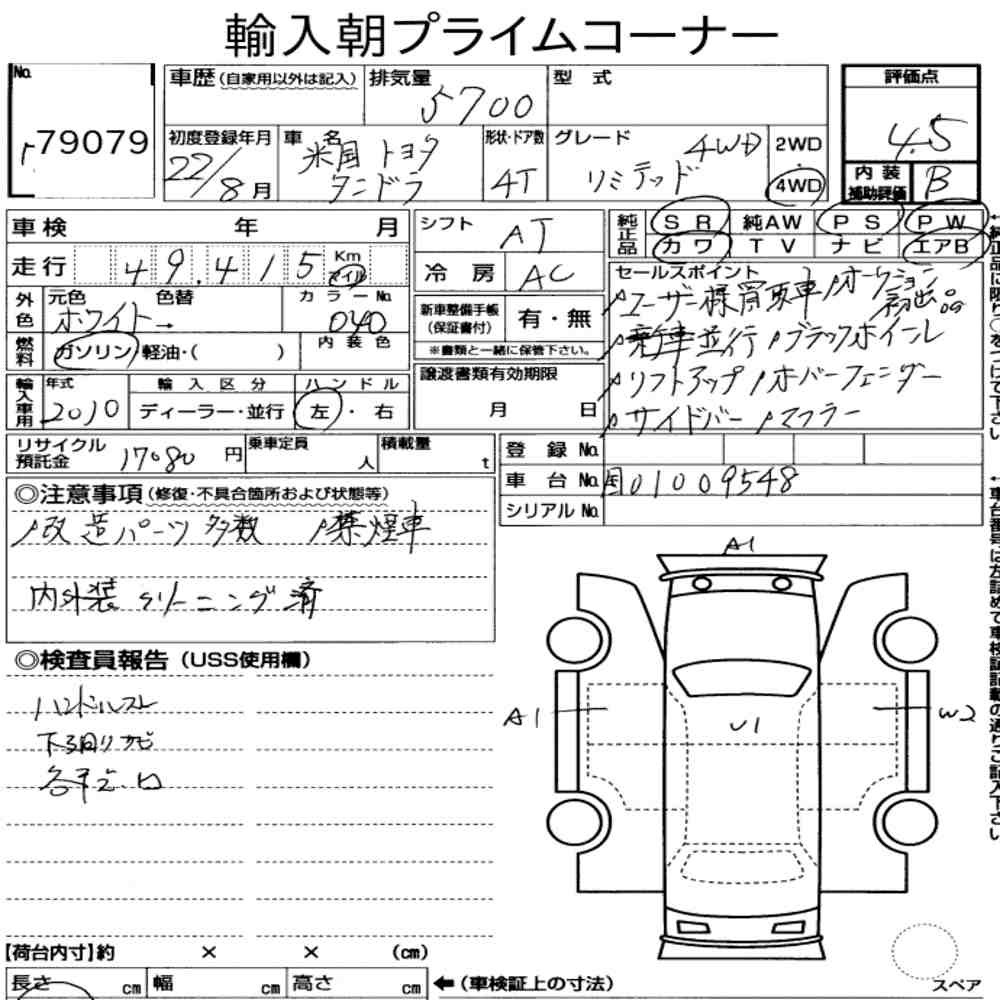 輸入朝プライムコーナー
No. 79079
車歴(自家用以外は記入)
排気量 5700
型式
評価点 4.5
初度登録年月 22/8月
車名 米国トヨタ タンドラ
形状・ドア数 4T
グレード 4WD リミテッド
2WD
4WD
内装補助評価 B
車検 年 月
シフト AT
純正品 SR 純AW PS PW
カワ TV ナビ エアB
走行 49,415 Km マイル
冷房 AC
セールスポイント
ユーザー様買取車 オークション初出品
新車並行 ブラックホイール
リフトアップ オーバーフェンダー
サイドバー マフラー
外色 元色 色替 カラーNo.
ホワイト→ 040
新車整備手帳(保証書付) 有・無
※書類と一緒に保管下さい。
燃料 ガソリン・軽油・( )
内装色
譲渡書類有効期限
月 日
輸入車用 年式 2010
輸入区分 ディーラー・並行
ハンドル 左・右
リサイクル預託金 17080円
乗車定員 人
積載量 t
登録No.
車台No. 国01009548
シリアルNo.
◎注意事項(修復・不具合箇所および状態等)
改造パーツ多数 禁煙車
内外装クリーニング済
◎検査員報告(USS使用欄)
ハンドルスレ
下廻りサビ
A1
A1
U1
W2
【荷台内寸】約 × × (cm)
長さ cm 幅 cm 高さ cm
←(車検証上の寸法)
スペア